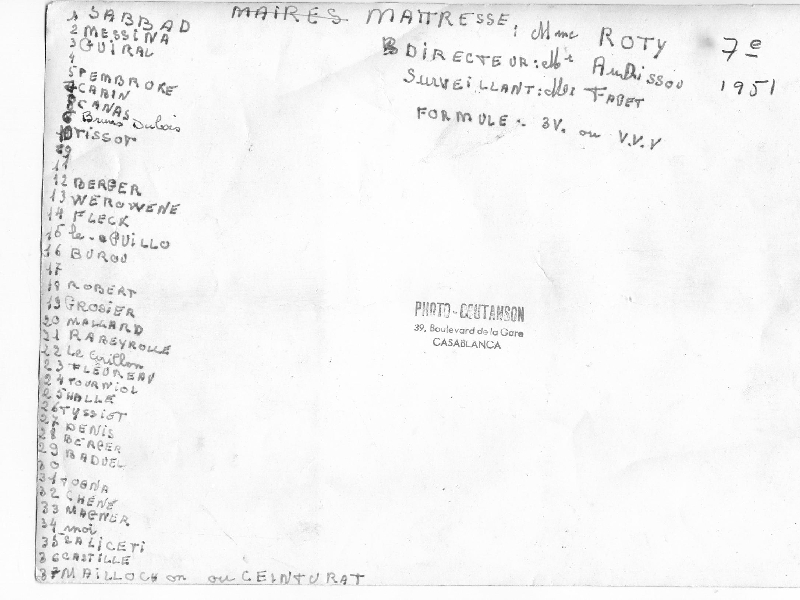 1 SABBAD
2 MESSINA
3 GUIRAL
4
5 PEMBROKE
CABIN
CANAS
Bruns Dubois
TISSOT
11
12 BERGER
13 WEROWENE
14 FLECK
15 le GUILLO
16 BUROU
17
18 ROBERT
19 GROSIER
20 MALLARD
21 RABEYROLLE
22 Le Guillon
23 FLEUREAU
24 TOURNIOL
25 HALLE
26 TYSSIOT
27 DENIS
28 BERGER
29 BADUEL
30
31 TOGNA
32 CHENE
33 MAGNER
34 moi
35 SALICETI
36 CASTILLE
37 MAILLOCHON ou CEINTURAT
MAIRES MAITRESSE: Mme ROTY 7e
DIRECTEUR: Mr AUDISSOU 1951
SURVEILLANT: Mr FABET
FORMULE: 3V. ou V.V.V
PHOTO-COUTANSON
39, Boulevard de la Gare
CASABLANCA